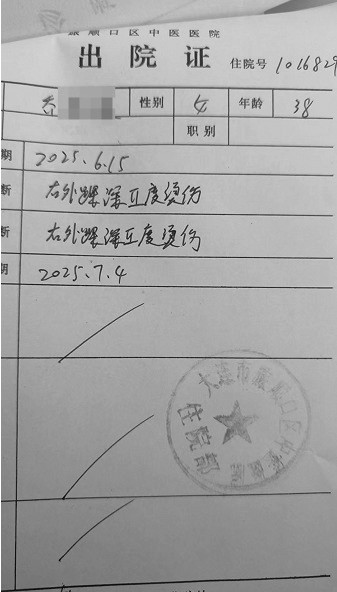 旅顺口区中医医院
出院证
住院号 1016829
李 性别 女 年龄 38
职别
期 2025.6.15
断 右外踝深II度烫伤
断 右外踝深II度烫伤
期 2025.7.4
大连市旅顺口区中医医院
住院部